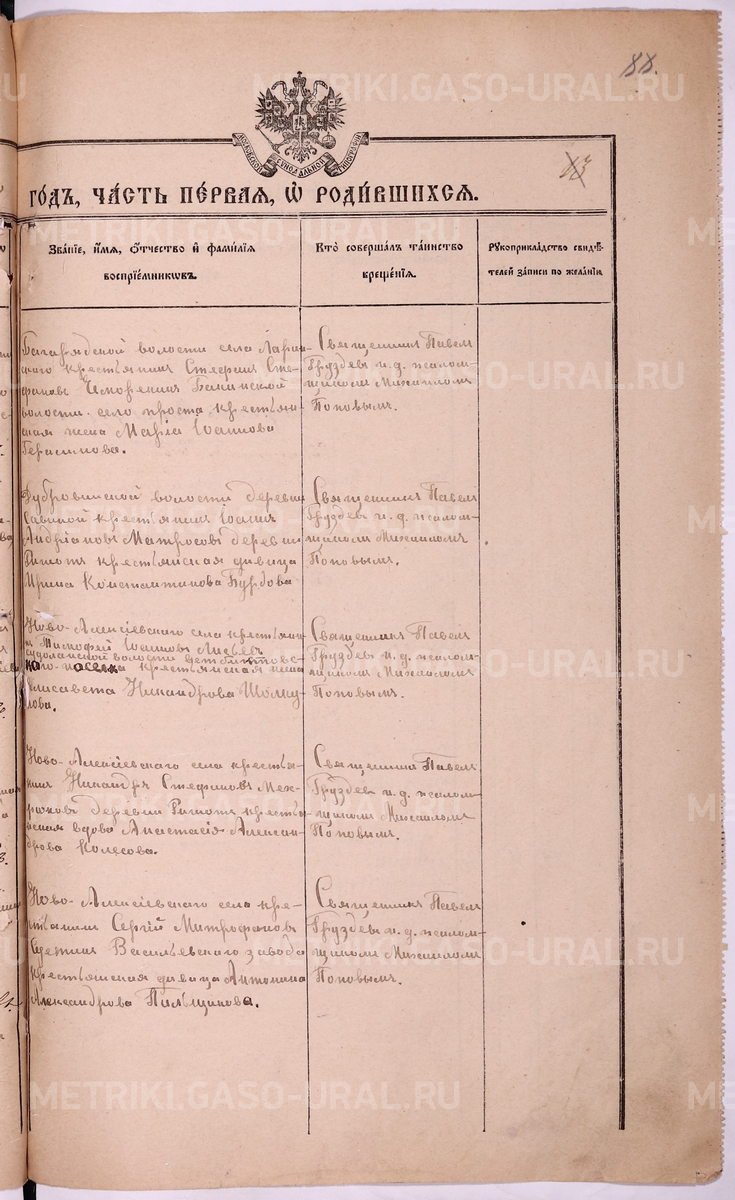 88.
13
МОСКОВСКОЙ СѴНОДАЛЬНОЙ ТИПОГРАФІИ
ГО́ДЪ, ЧА́СТЬ ПЕ́РВАЯ, Ѡ҆ РОДИ́ВШИХСЯ.
Зва́нїе, и҆́мѧ, ѻ҆́тчество и҆ фами́лїѧ
воспрїе́мникѡвъ.
Кто̀ соверша́лъ та́инство
креще́нїѧ.
Рꙋкоприкла́дство свидѣ́-
телей за́писи по жела́нїю
Багарядской волости села
крестьянин Стефан Сте-
фанов
волости село проста крестьян-
ская жена Марія Іоаннова
Герасимова.
Священник Павел
Груздев и. д. псалом-
щиком Михаилом
Поповым.
Дубровинской волости деревни
крестьянин Іоанн
Андріанов Матросов деревни
крестьянская девица
Ирина Константинова Бурдова
Священник Павел
Груздев и. д. псалом-
щиком Михаилом
Поповым.
Ново-Алексіевского села крестьян-
Тимофей Іоаннов
волости
крестьянская жена
Елисавета Никандрова
Священник Павел
Груздев и. д. псалом-
щиком Михаилом
Поповым.
Ново-Алексіевского села крестья-
нин Никандр Стефанов
деревни крестья-
нская вдова Анастасія Алексан-
дрова Колесова.
Священник Павел
Груздев и. д. псалом-
щиком Михаилом
Поповым.
Ново-Алексіевского села кре-
стьянин Сергій Митрофанов
Васильевского завода
крестьянская девица Антонина
Александрова Пильщикова.
Священник Павел
Груздев и. д. псалом-
щиком Михаилом
Поповым.
METRIKI.GASO-URAL.RU